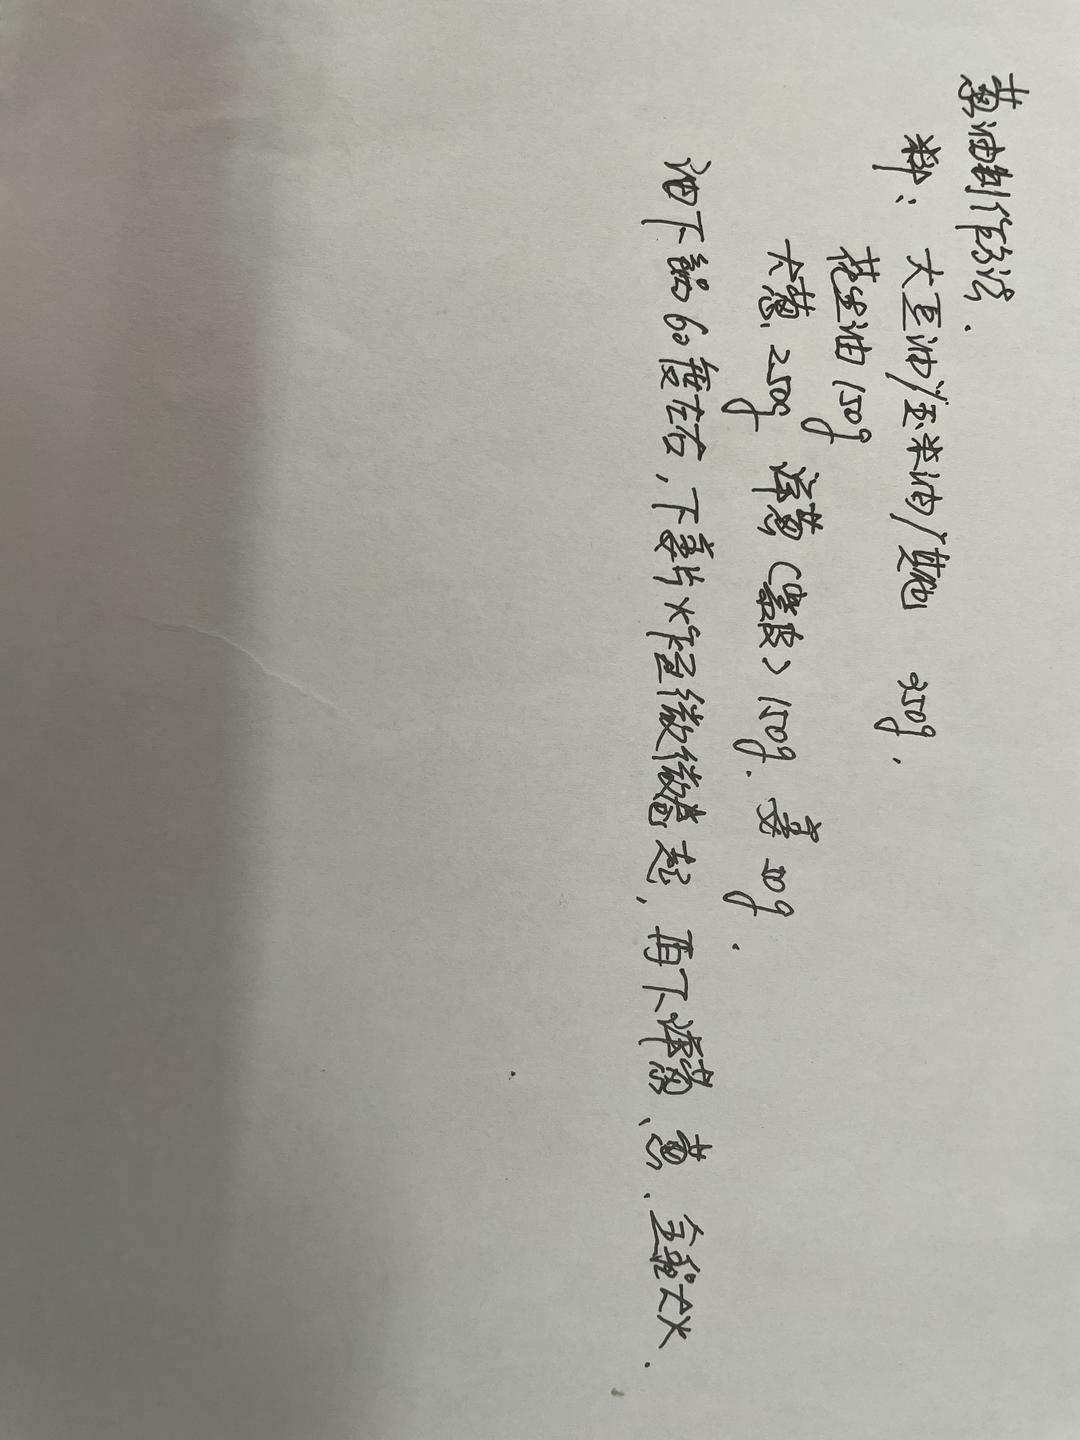 葱油制作方法.
料: 大豆油/玉米油/其他 350g.
花生油 150g
大葱 250g 洋葱(紫皮) 150g. 姜 50g.
油下锅60度左右,下姜片炸至微微卷起,再下洋葱、葱.全程大火.